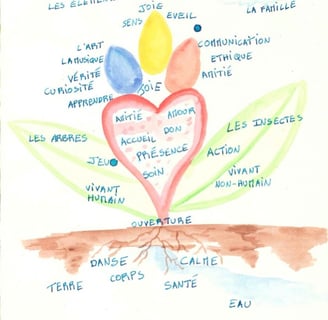 LES ÉLÉMEN
JOIE
SENS
EVEIL
LA FAMILLE
L'ART
LA MUSIQUE
VÉRITÉ
CURIOSITÉ
APPRENDRE
JOIE
COMMUNICATION
ETHIQUE
AMITIÉ
AMITIÉ
AMOUR
ACCUEIL
DON
PRÉSENCE
SOIN
LES ARBRES
LES INSECTES
JEU
ACTION
VIVANT
HUMAIN
VIVANT
NON-HUMAIN
OUVERTURE
DANSE
CALME
CORPS
TERRE
SANTÉ
EAU